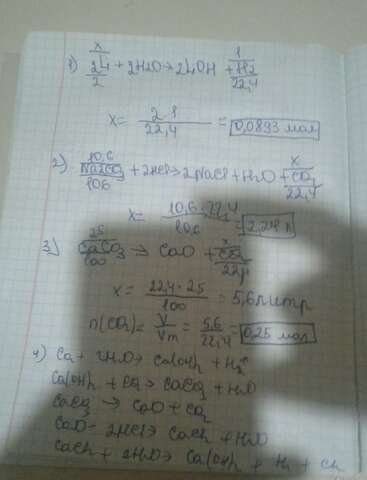 x 1
1) 2Li + 2H2O → 2LiOH + H2
2 22,4
x = 2·1 / 22,4 = 0,0893 мол
10,6 x
2) Na2CO3 + 2HCl → 2NaCl + H2O + CO2
106 22,4
x = 10,6·22,4 / = 2,24 л
25 x
3) CaCO3 → CaO + CO2
100 22,4
x = 22,4·25 / 100 = 5,6 литр
n(CO2) = V / Vm = 5,6 / 22,4 = 0,25 мол
4) Ca + 2H2O → Ca(OH)2 + H2↑
Ca(OH)2 + CO2 → CaCO3 + H2O
CaCO3 → CaO + CO2
CaO + 2HCl → CaCl2 + H2O
CaCl2 + 2H2O → Ca(OH)2 + H2 + Cl2